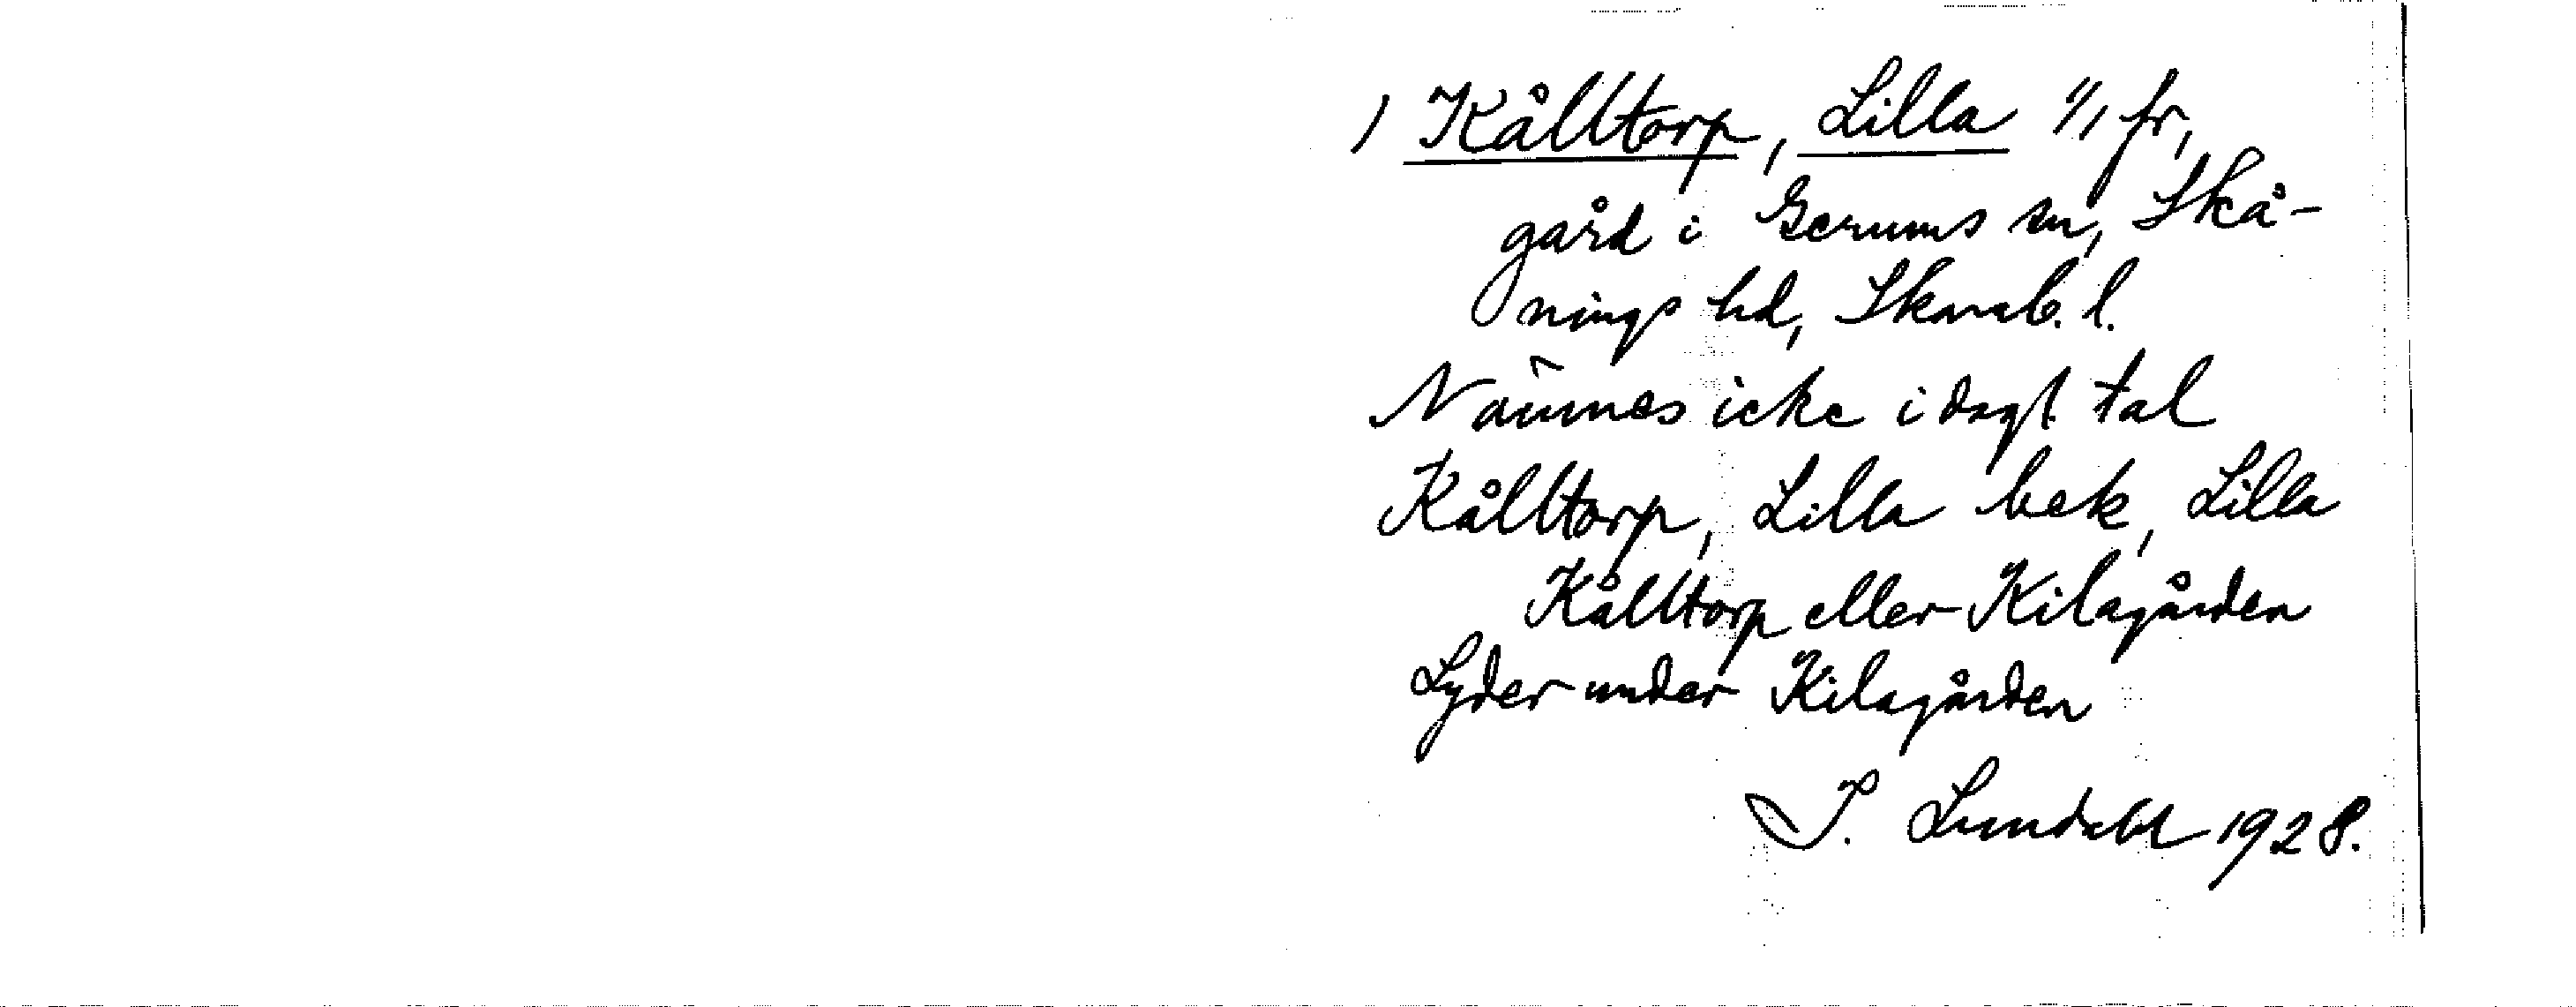 ) Kålltorp, Lilla 1/1 fr,
gård i Gerums sn, Skå-
nings hd, Skarab. l.
Nämnes icke i dagl. tal
Kålltorp, Lilla bek, Lilla
Kålltorp eller Kilagården
Lyder under Kilagården
I. Lundahl 1928.